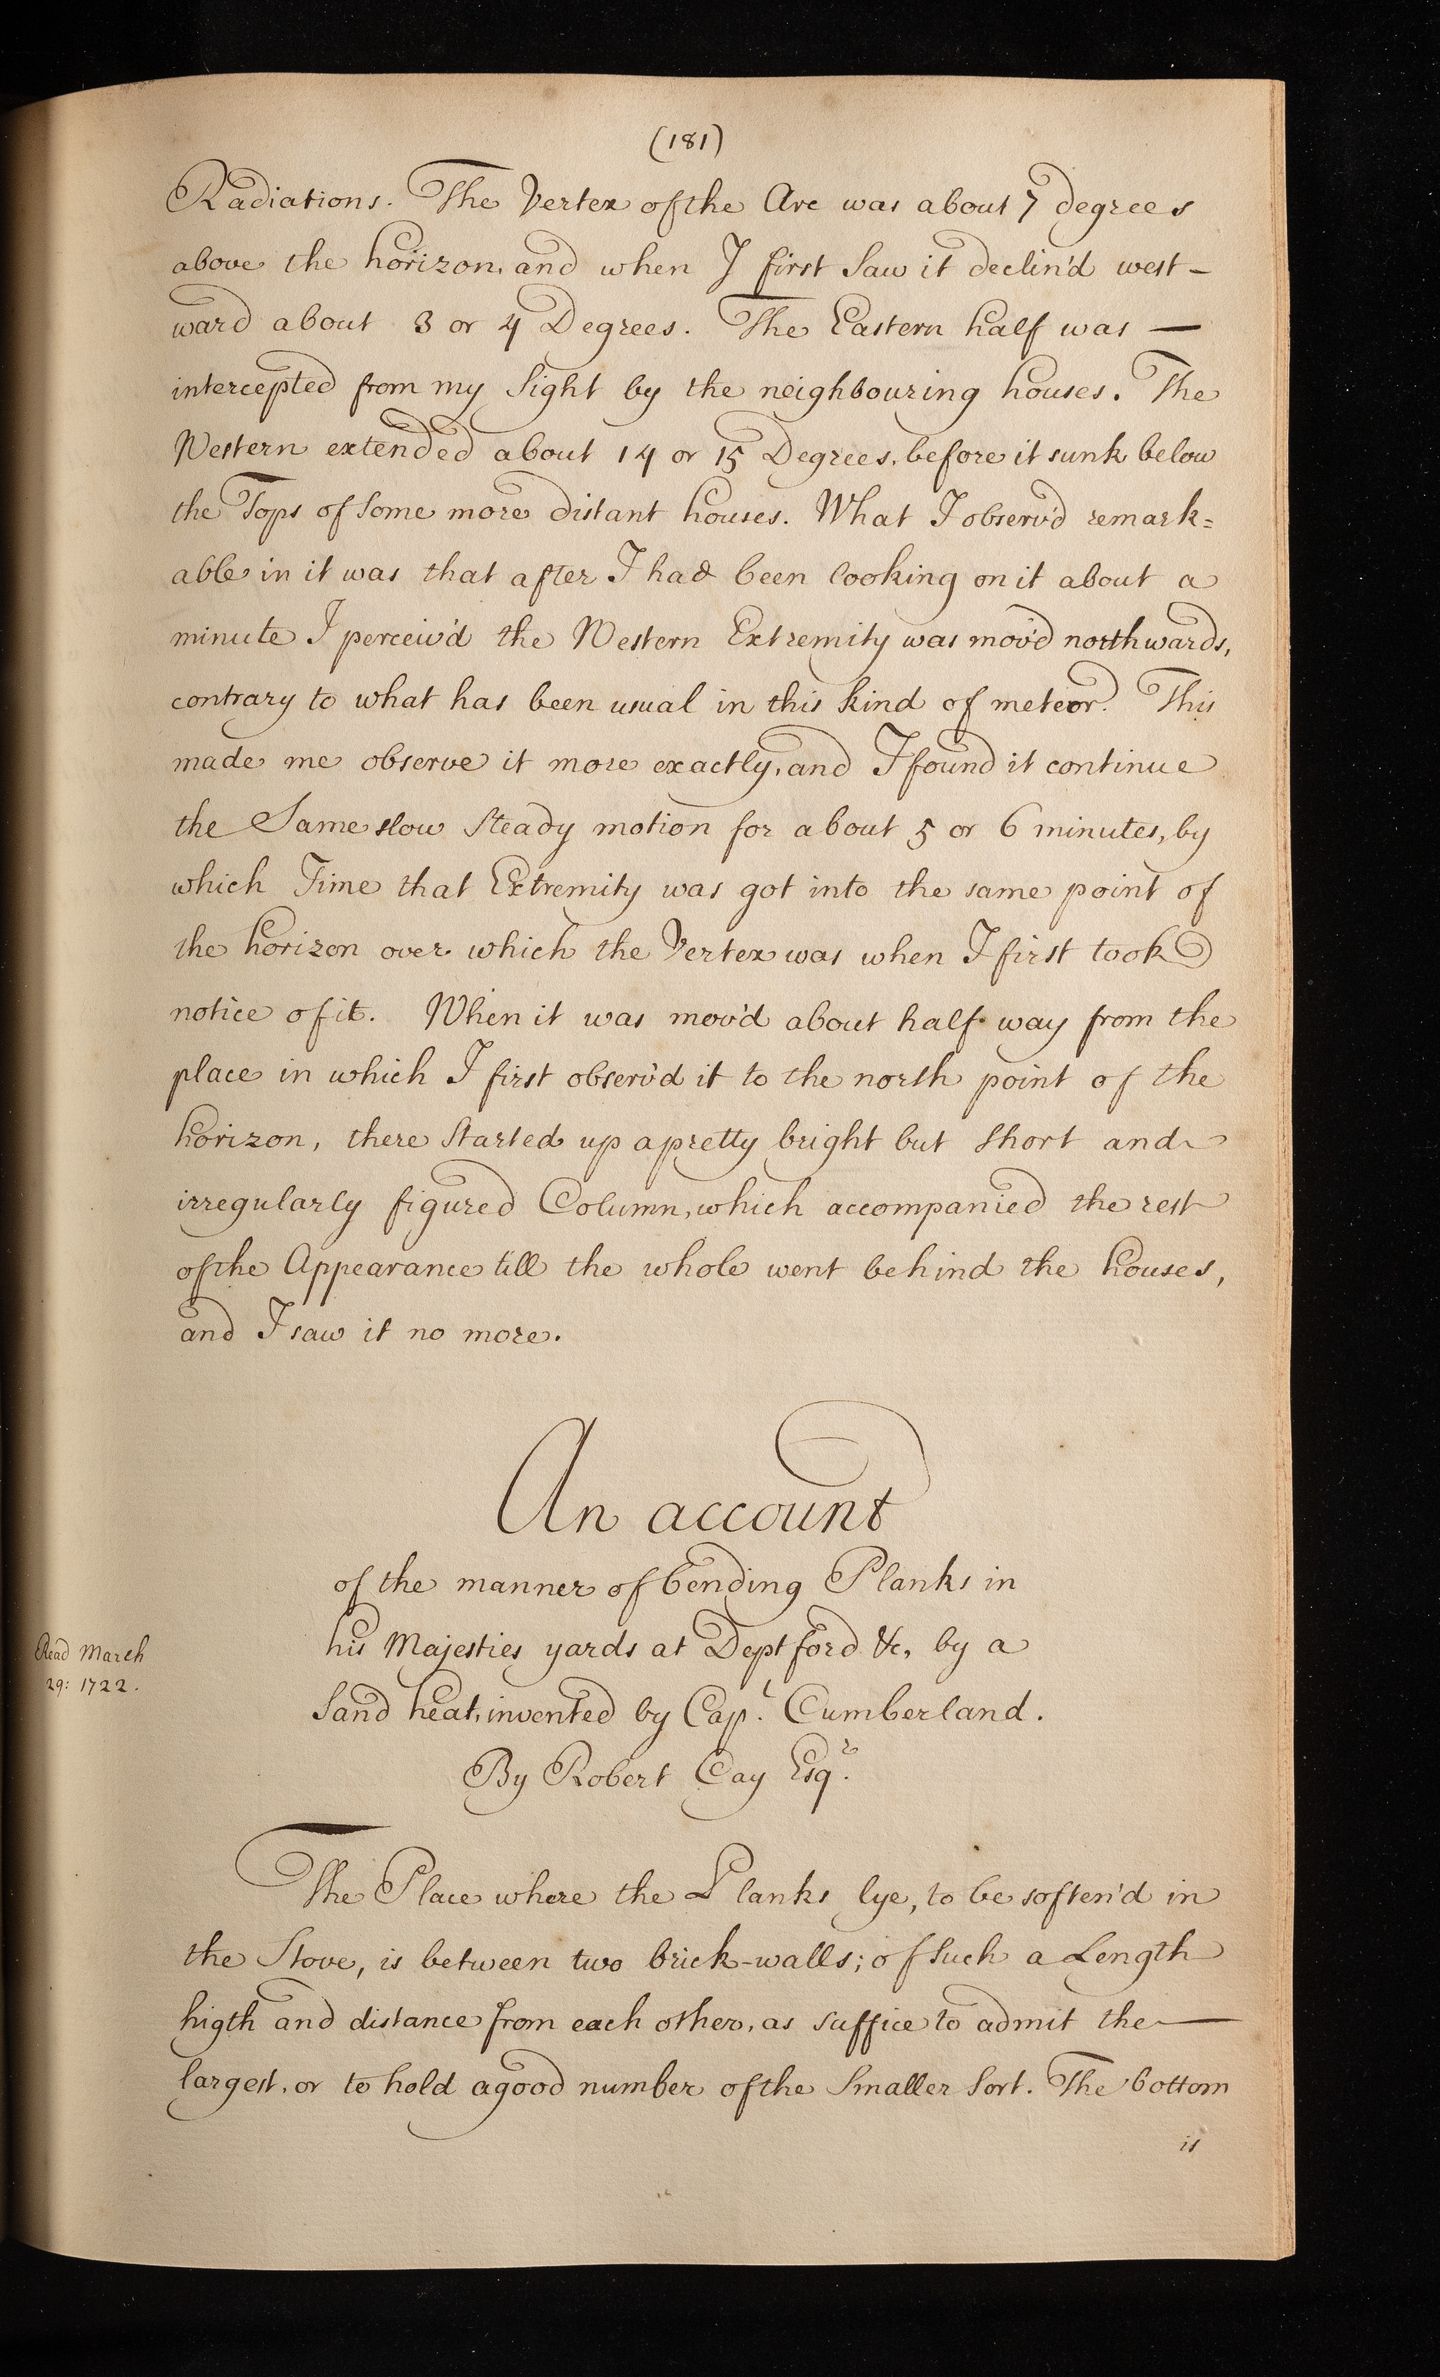 (181)
Radiations. The Vertex of the Arc was about 7 degrees
above the horizon, and when I first saw it declin'd west-
ward about 3 or 4 Degrees. The Eastern half was —
intercepted from my sight by the neighbouring houses. The
Western extended about 14 or 15 Degrees, before it sunk below
the Tops of some more distant houses. What I observ'd remark=
able in it was that after I had been looking on it about a
minute I perceiv'd the Western Extremity was mov'd northwards,
contrary to what has been usual in this kind of meteor. This
made me observe it more exactly, and I found it continue
the Same slow steady motion for about 5 or 6 minutes, by
which Time that Extremity was got into the same point of
the horizon over which the Vertex was when I first took
notice of it. When it was mov'd about half way from the
place in which I first observ'd it to the north point of the
horizon, there started up a pretty bright but short and
irregularly figured Column, which accompanied the rest
of the Appearance till the whole went behind the houses,
and I saw it no more.
An account
of the manner of bending Planks in
his Majesties yards at Deptford &c, by a
Sand heat, invented by Cap.t Cumberland.
By Robert Cay Esq.r
Read March
29: 1722.
The Place where the Planks lye, to be soften'd in
the Stove, is between two brick-walls; of such a Length
higth and distance from each other, as suffice to admit the —
largest, or to hold a good number of the smaller sort. The bottom
is